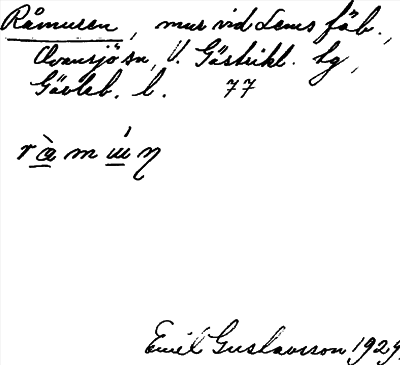 Råmuren, mur vid Lems fäb.,
Ovansjö sn, V. Gästrikl. tg,
Gävleb. l. 77
r à̲ m ú̲ ŋ
Emil Gustavsson 1929.